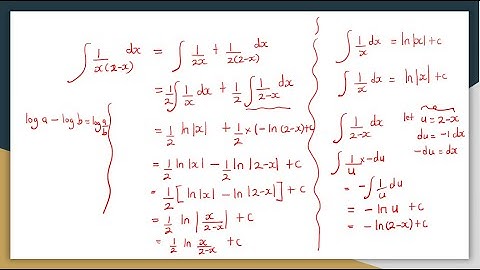 ∫ 1/x(2-x) dx = ∫ 1/2x + 1/2(2-x) dx
= 1/2 ∫ 1/x dx + 1/2 ∫ 1/2-x dx
log a - log b = log a/b
= 1/2 ln|x| + 1/2 x (-ln(2-x)+c
= 1/2 ln|x| - 1/2 ln|2-x| + c
= 1/2 [ln|x| - ln|2-x|] + c
= 1/2 ln |x/2-x| + c
= 1/2 ln x/2-x + c
∫ 1/x dx = ln|x| + c
∫ 1/x dx = ln|x| + c
∫ 1/2-x dx let u = 2-x
du = -1 dx
-du = dx
∫ 1/u x -du
= -∫ 1/u du
= -ln u + c
= -ln(2-x)+c